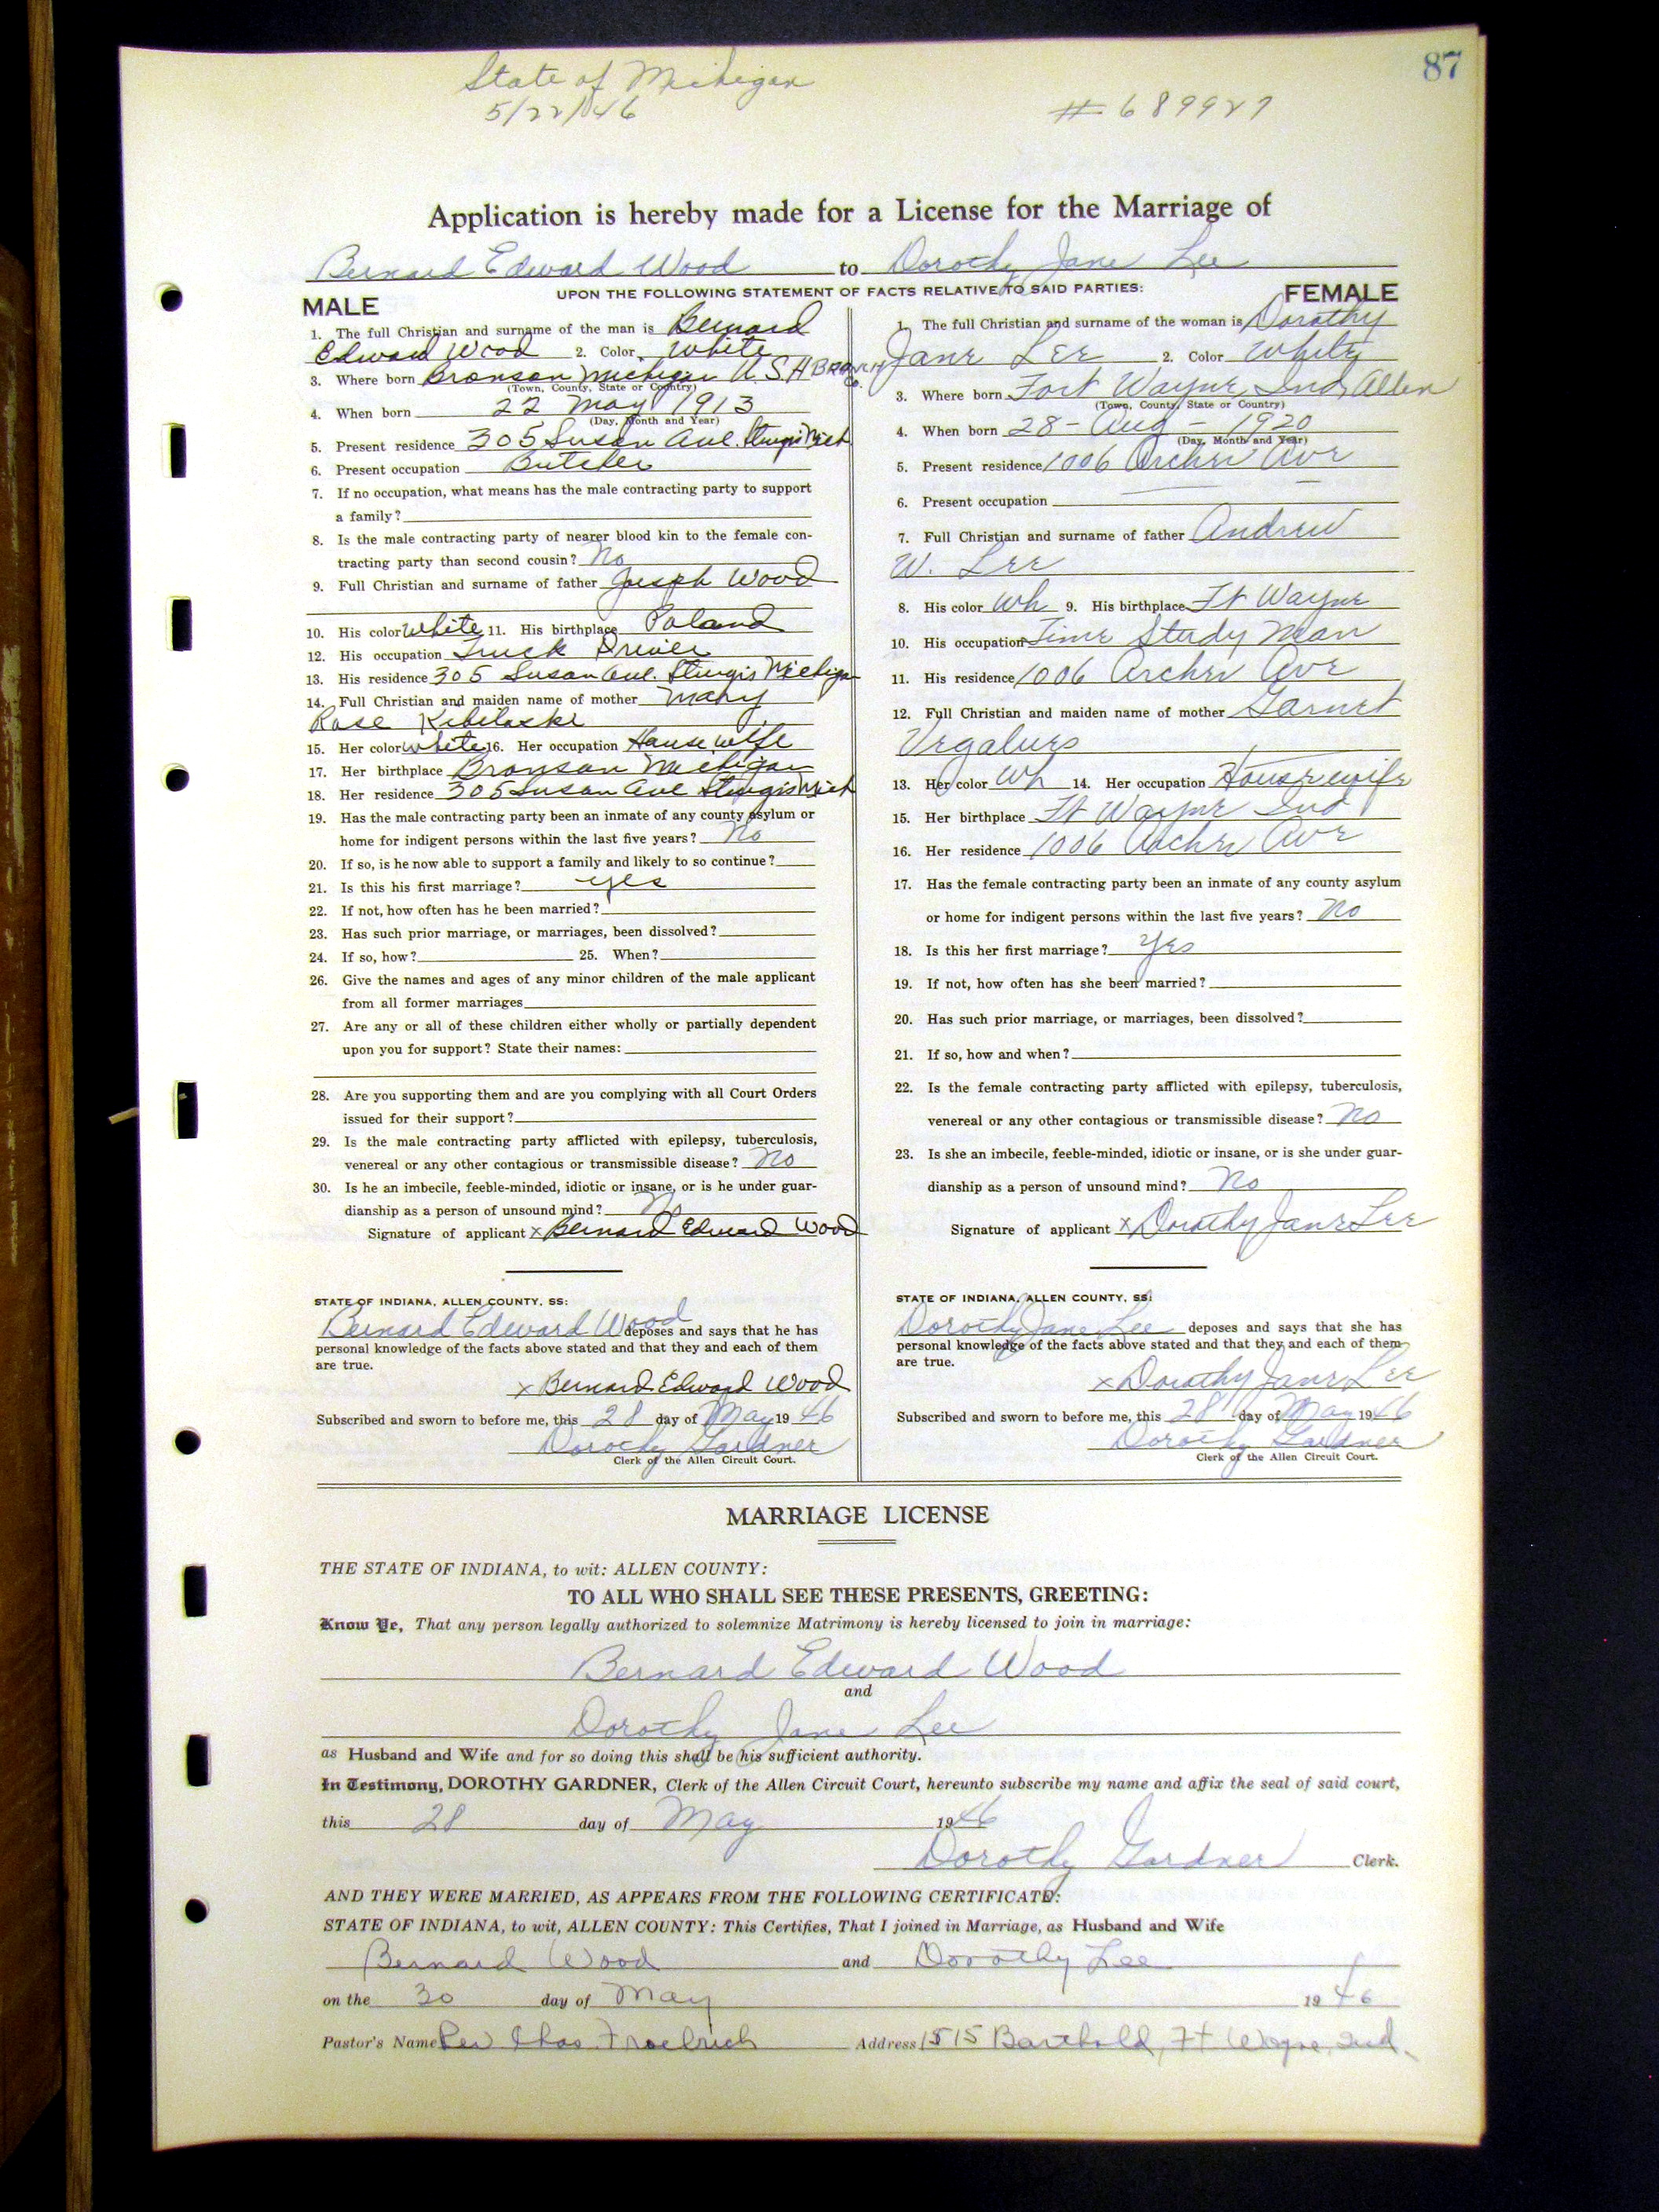 87
State of Michigan
5/22/46 # 689927
Application is hereby made for a License for the Marriage of
Bernard Edward Wood to Dorothy Jane Lee
UPON THE FOLLOWING STATEMENT OF FACTS RELATIVE TO SAID PARTIES:
MALE
1. The full Christian and surname of the man is Bernard
Edward Wood 2. Color White
3. Where born Bronson Michigan U.S.A BRANCH Co.
(Town, County, State or Country)
4. When born 22 May 1913
(Day, Month and Year)
5. Present residence 305 Susan Ave. Sturgis Mich
6. Present occupation Butcher
7. If no occupation, what means has the male contracting party to support
a family?
8. Is the male contracting party of nearer blood kin to the female con-
tracting party than second cousin? No
9. Full Christian and surname of father Joseph Wood
10. His color White 11. His birthplace Poland
12. His occupation Truck Driver
13. His residence 305 Susan Ave. Sturgis Michigan
14. Full Christian and maiden name of mother Mary
Rose
15. Her color White 16. Her occupation House wife
17. Her birthplace Bronson Michigan
18. Her residence 305 Susan Ave Sturgis Mich
19. Has the male contracting party been an inmate of any county asylum or
home for indigent persons within the last five years? No
20. If so, is he now able to support a family and likely to so continue?
21. Is this his first marriage? yes
22. If not, how often has he been married?
23. Has such prior marriage, or marriages, been dissolved?
24. If so, how? 25. When?
26. Give the names and ages of any minor children of the male applicant
from all former marriages
27. Are any or all of these children either wholly or partially dependent
upon you for support? State their names:
28. Are you supporting them and are you complying with all Court Orders
issued for their support?
29. Is the male contracting party afflicted with epilepsy, tuberculosis,
venereal or any other contagious or transmissible disease? No
30. Is he an imbecile, feeble-minded, idiotic or insane, or is he under guar-
dianship as a person of unsound mind? No
Signature of applicant x Bernard Edward Wood
STATE OF INDIANA, ALLEN COUNTY, SS:
Bernard Edward Wood deposes and says that he has
personal knowledge of the facts above stated and that they and each of them
are true.
x Bernard Edward Wood
Subscribed and sworn to before me, this 28 day of May 1946
Dorothy Gardner
Clerk of the Allen Circuit Court.
FEMALE
1. The full Christian and surname of the woman is Dorothy
Jane Lee 2. Color White
3. Where born Fort Wayne, Ind, Allen
(Town, County, State or Country)
4. When born 28 - Aug - 1920
(Day, Month and Year)
5. Present residence 1006 Archer Ave
6. Present occupation
7. Full Christian and surname of father Andrew
W. Lee
8. His color Wh 9. His birthplace Ft Wayne
10. His occupation Time Study Man
11. His residence 1006 Archer Ave
12. Full Christian and maiden name of mother Garnet
13. Her color Wh 14. Her occupation Housewife
15. Her birthplace Ft Wayne Ind
16. Her residence 1006 Archer Ave
17. Has the female contracting party been an inmate of any county asylum
or home for indigent persons within the last five years? No
18. Is this her first marriage? Yes
19. If not, how often has she been married?
20. Has such prior marriage, or marriages, been dissolved?
21. If so, how and when?
22. Is the female contracting party afflicted with epilepsy, tuberculosis,
venereal or any other contagious or transmissible disease? No
23. Is she an imbecile, feeble-minded, idiotic or insane, or is she under guar-
dianship as a person of unsound mind? No
Signature of applicant x Dorothy Jane Lee
STATE OF INDIANA, ALLEN COUNTY, SS:
Dorothy Jane Lee deposes and says that she has
personal knowledge of the facts above stated and that they and each of them
are true.
x Dorothy Jane Lee
Subscribed and sworn to before me, this 28 day of May 1946
Dorothy Gardner
Clerk of the Allen Circuit Court.
MARRIAGE LICENSE
THE STATE OF INDIANA, to wit: ALLEN COUNTY:
TO ALL WHO SHALL SEE THESE PRESENTS, GREETING:
Know Ye, That any person legally authorized to solemnize Matrimony is hereby licensed to join in marriage:
Bernard Edward Wood
and
Dorothy Jane Lee
as Husband and Wife and for so doing this shall be his sufficient authority.
In Testimony, DOROTHY GARDNER, Clerk of the Allen Circuit Court, hereunto subscribe my name and affix the seal of said court,
this 28 day of May 1946
Dorothy Gardner Clerk.
AND THEY WERE MARRIED, AS APPEARS FROM THE FOLLOWING CERTIFICATE:
STATE OF INDIANA, to wit, ALLEN COUNTY: This Certifies, That I joined in Marriage, as Husband and Wife
Bernard Wood and Dorothy Lee
on the 30 day of May 1946
Pastor's Name Rev Chas. Froelrich Address 1515 Barthold, Ft Wayne, Ind.